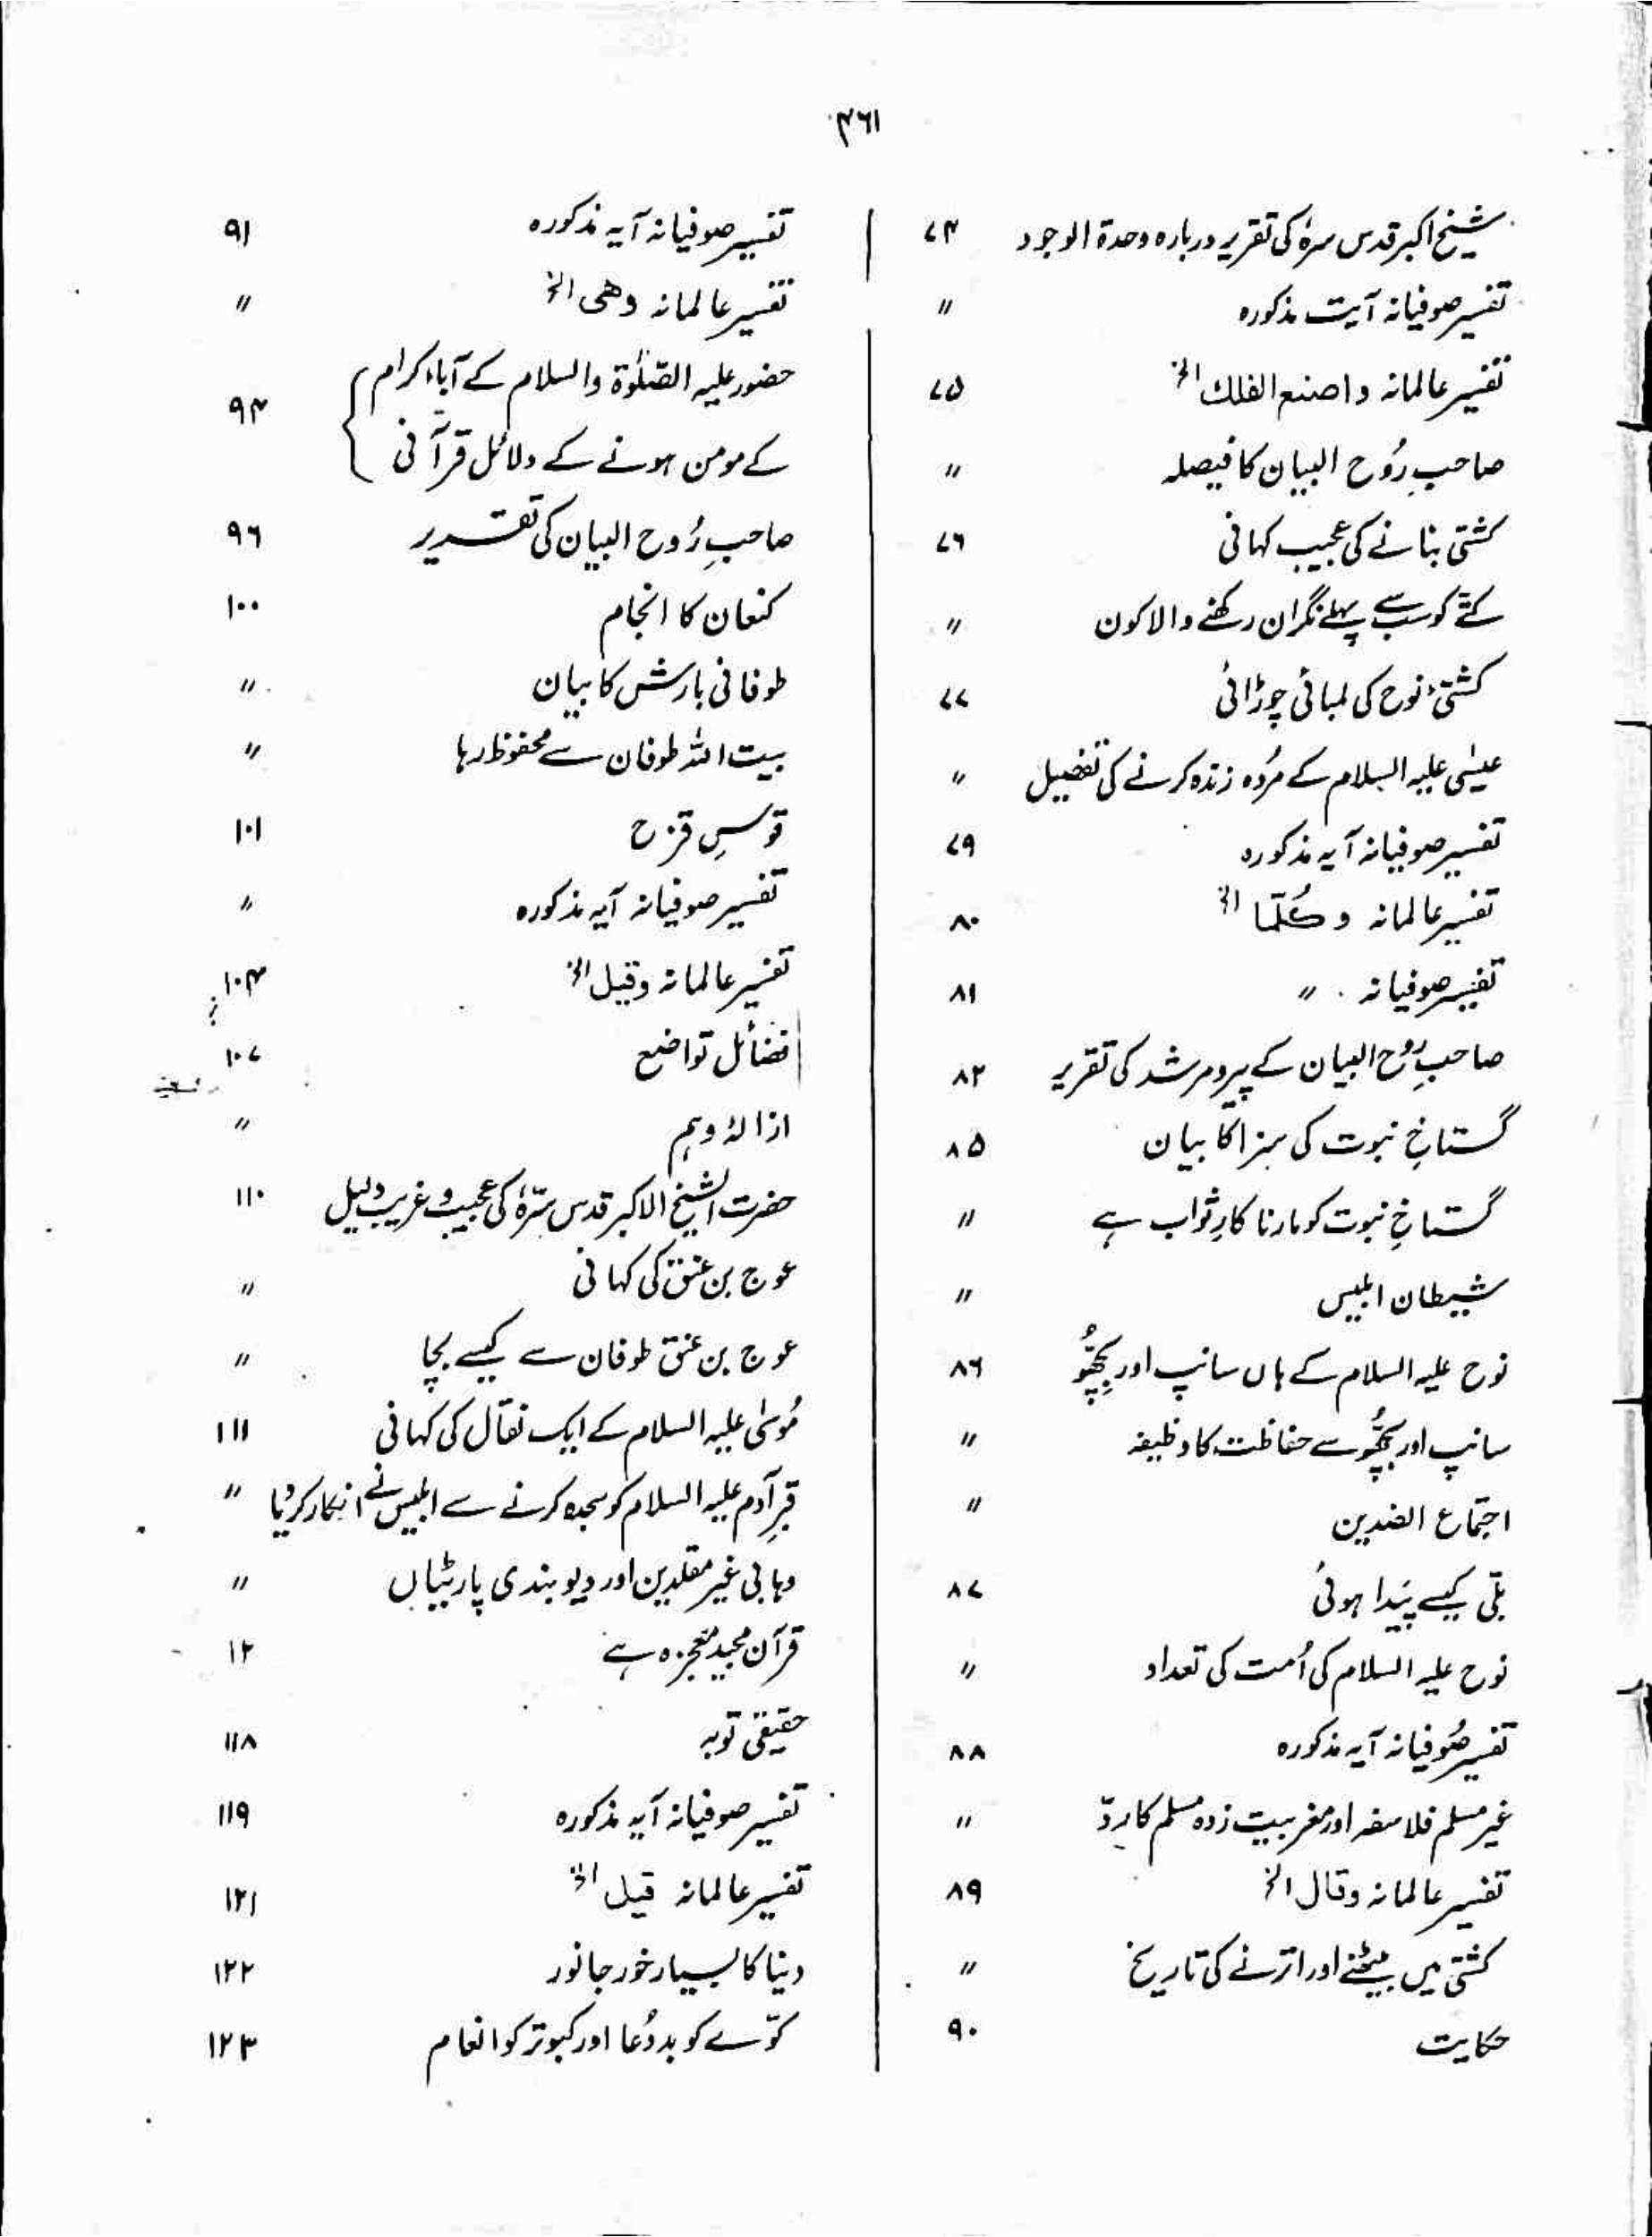 ۴۶۱
شیخ اکبر قدس سرہٗ کی تقریر دربارہ وحدۃ الوجود ۷۴
تفسیر صوفیانہ آیت مذکورہ "
تفسیر عالمانہ واصنع الفلك الخ ۷۵
صاحبِ رُوح البیان کا فیصلہ "
کشتی بنانے کی عجیب کہانی ۷۶
کتے کو سب سے پہلے نگران رکھنے والا کون "
کشتیٔ نوح کی لمبائی چوڑائی ۷۷
عیسٰی علیہ السلام کے مُردہ زندہ کرنے کی تفصیل "
تفسیر صوفیانہ آیہ مذکورہ ۷۹
تفسیر عالمانہ و كُلَّمَا الخ ۸۰
تفسیر صوفیانہ " ۸۱
صاحبِ رُوح البیان کے پیر و مرشد کی تقریر ۸۲
گستاخِ نبوت کی سزا کا بیان ۸۵
گستاخِ نبوت کو مارنا کارِ ثواب ہے "
شیطان ابلیس "
نوح علیہ السلام کے ہاں سانپ اور بچھُّو ۸۶
سانپ اور بچھُّو سے حفاظت کا وظیفہ "
اجتماع الضدین "
بلّی کیسے پَیدا ہوئی ۸۷
نوح علیہ السلام کی اُمت کی تعداد "
تفسیر صُوفیانہ آیہ مذکورہ ۸۸
غیر مسلم فلاسفہ اور مغربیت زدہ مسلم کا ردّ "
تفسیر عالمانہ وقال الخ ۸۹
کشتی میں بیٹھنے اور اترنے کی تاریخ "
حکایت ۹۰
تفسیر صوفیانہ آیہ مذکورہ ۹۱
تفسیر عالمانہ وهی الخ "
حضور علیہ الصّلٰوۃ والسلام کے آباء کرام
کے مومن ہونے کے دلائل قرآنی ۹۴
صاحبِ رُوح البیان کی تقریر ۹۶
کنعان کا انجام ۱۰۰
طوفانی بارش کا بیان "
بیت اللہ طوفان سے محفوظ رہا "
قوسِ قزح ۱۰۱
تفسیر صوفیانہ آیہ مذکورہ "
تفسیر عالمانہ وقیل الخ ۱۰۴
فضائل تواضع ۱۰۷
ازالۂ وہم "
حضرت الشیخ الاکبر قدس سرّہٗ کی عجیب و غریب دلیل ۱۱۰
عوج بن عنق کی کہانی "
عوج بن عنق طوفان سے کیسے بچا "
مُوسٰی علیہ السلام کے ایک نقال کی کہانی ۱۱۱
قبرِ آدم علیہ السلام کو سجدہ کرنے سے ابلیس نے انکار کر دیا "
وہابی غیر مقلدین اور دیوبندی پارٹیاں "
قرآن مجید معجزہ ہے ۱۲
حقیقی توبہ ۱۱۸
تفسیر صوفیانہ آیہ مذکورہ ۱۱۹
تفسیر عالمانہ قیل الخ ۱۲۱
دنیا کا بسیار خور جانور ۱۲۲
کوّے کو بد دُعا اور کبوتر کو انعام ۱۲۳